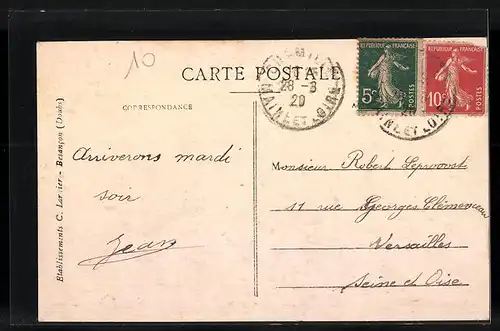 10
CARTE POSTALE
CORRESPONDANCE
REPUBLIQUE FRANÇAISE
5c
POSTES
REPUBLIQUE FRANÇAISE
10c
POSTES
28 -3
20
MAINE ET LOIRE
Arriverons mardi
soir
Jean
Monsieur Robert Leprovost
11 rue Georges Clémenceau
Versailles
Seine et Oise
Etablissements C. Lardier - Besançon (Doubs)